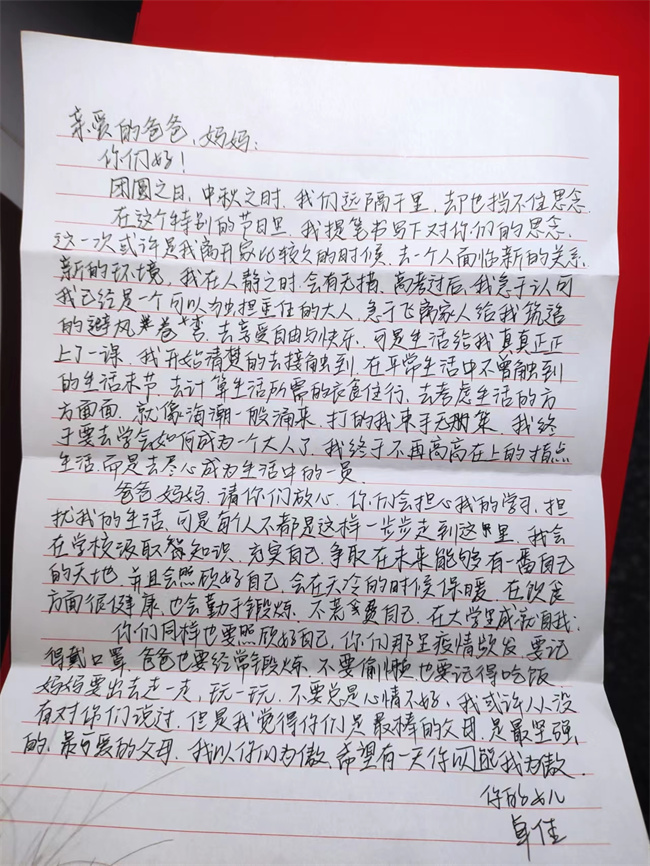 亲爱的爸爸、妈妈：
你们好！
团圆之日，中秋之时，我们远隔千里，却也挡不住思念。
在这个特别的节日里，我提笔书写下对你们的思念，
这一次或许是我离开家比较久的时候，去一个人面临新的关系，
新的环境，我在人静之时，会有无措，高考过后，我急于认可
我已经是一个可以独担重任的大人，急于飞离家人给我筑造
的避风港湾，去享受自由与快乐，可是生活给我真真正正
上了一课，我开始清楚的去接触到，在平常生活中不曾触到
的生活末节，去计算生活所需的衣食住行，去考虑生活的方
方面面，就像海潮一般涌来，打的我束手无册策，我终
于要去学会如何成为一个大人了，我终于不再高高在上的指点
生活，而是去尽心成为生活中的一员。
爸爸妈妈，请你们放心，你们会担心我的学习，担
扰我的生活，可是每个人不都是这样一步步走到这里，我会
在学校汲取知识，充实自己，争取在未来能够有一番自己
的天地，并且会照欣好自己，会在天冷的时候保暖，在饮食
方面很健康，也会勤于锻炼，不荒费自己，在大学里成就自我；
你们同样也要照欣好自己，你们那里疫情频发，要记
得戴口罩，爸爸也要经常锻炼，不要偷懒，也要记得吃饭，
妈妈要出去走一走，玩一玩，不要总是心情不好，我或许从小没
有对你们说过，但是我觉得你们是最棒的父母，是最坚强
的、最可爱的父母，我以你们为傲，希望有一天你们能我为傲．
你的女儿
卓佳